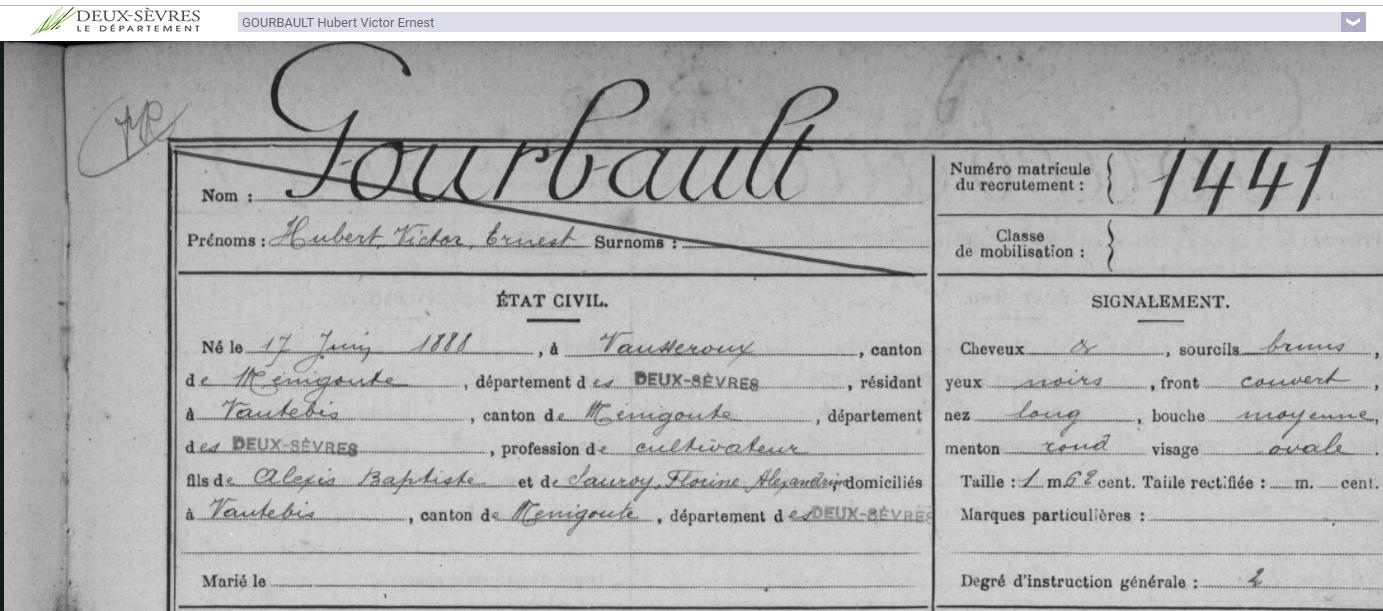 DEUX-SÈVRES
LE DÉPARTEMENT
GOURBAULT Hubert Victor Ernest
Gourbault
Nom :
Prénoms : Hubert, Victor, Ernest Surnoms :
Numéro matricule
du recrutement : 1441
Classe
de mobilisation :
ÉTAT CIVIL.
Né le 17 Juin 1888, à Vausseroux, canton
de Ménigoute, département des DEUX-SÈVRES, résidant
à Vautebis, canton de Ménigoute, département
des DEUX-SÈVRES, profession de cultivateur
fils de Alexis Baptiste et de Sauroy, Florine Alexandrine, domiciliés
à Vautebis, canton de Ménigoute, département des DEUX-SÈVRES
Marié le
SIGNALEMENT.
Cheveux &, sourcils bruns,
yeux noirs, front couvert,
nez long, bouche moyenne,
menton rond visage ovale.
Taille : 1 m. 62 cent. Taille rectifiée : m. cent.
Marques particulières :
Degré d'instruction générale : 2